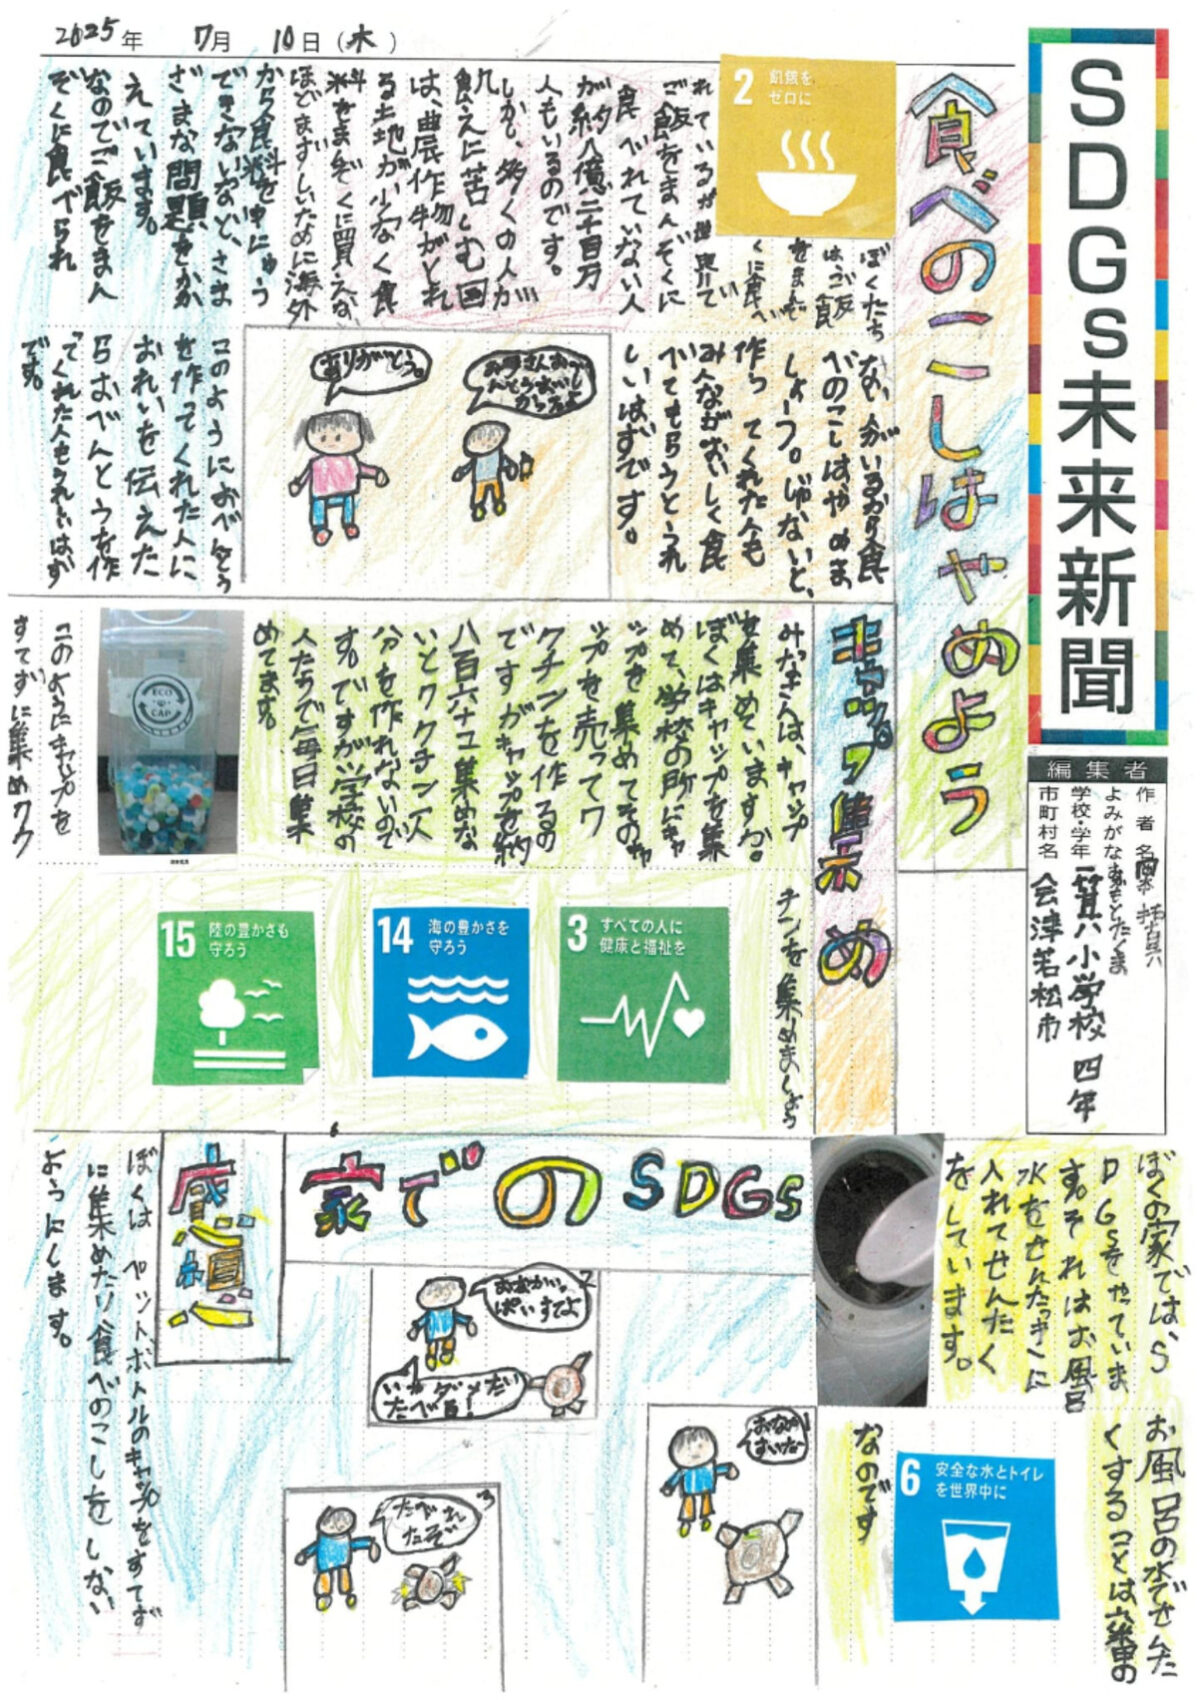 2025年 7月 10日(木)
SDGs未来新聞
編集者
作者名
よみがな
学校・学年 一箕小学校 四年
市町村名 会津若松市
食べのこしはやめよう
2 飢餓を
ゼロに
ぼくたち
はご飯
をまんぞ
くに食べ
れているが世界で
ご飯をまんぞくに
食べれていない人
が約八億二千百万
人もいるのです。
しかも、多くの人が
飢えに苦しむ国
は、農作物がとれ
る土地が少なく食
料をまんぞくに買えな
ほどまずしいために海外
から食料をゆにゅう
できないなど、さま
ざまな問題をかか
えています。
なのでご飯をまん
ぞくに食べられ
ない人がいるから食
べのこしはやめま
しょーう。じゃないと、
作ってくれた人も
みんながおいしく食
べてもらうとうれ
しいはずです。
お母さんおべん
とうおいし
かったよ
ありがとう。
このようにおべんとう
を作ってくれた人に
おれいを伝えた
らおべんとうを作
ってくれた人もうれしいはず
です。
キャップ集め
みなさんは、キャップ
を集めていますか。
ぼくはキャップを集
めて、学校の所にキャ
ップを集めてそのキャ
ップを売ってワ
クチンを作るの
ですがキャップを約
八百六十コ集めな
いとワクチン一人
分を作れないので
す。ですが学校の
人たちで毎日集
めてます。
ECO
CAP
このようにキャップを
すてずに集めワク
チンを集めましょう
3 すべての人に
健康と福祉を
14 海の豊かさを
守ろう
15 陸の豊かさも
守ろう
家でのSDGs
ぼくの家では、S
DGsをやっていま
す。それはお風呂
水をせんたっきに
入れてせんたく
をしています。
お風呂の水でせんた
くすることは六番の
なのです
6 安全な水とトイレ
を世界中に
1
おなか
すいた
2
おなかいっ
ぱいすてよ
いやダメだい
たべろ!
3
たべれ
たぞ
感想
ぼくは ペットボトルのキャップをすてず
に集めたり食べのこしをしない
ようにします。